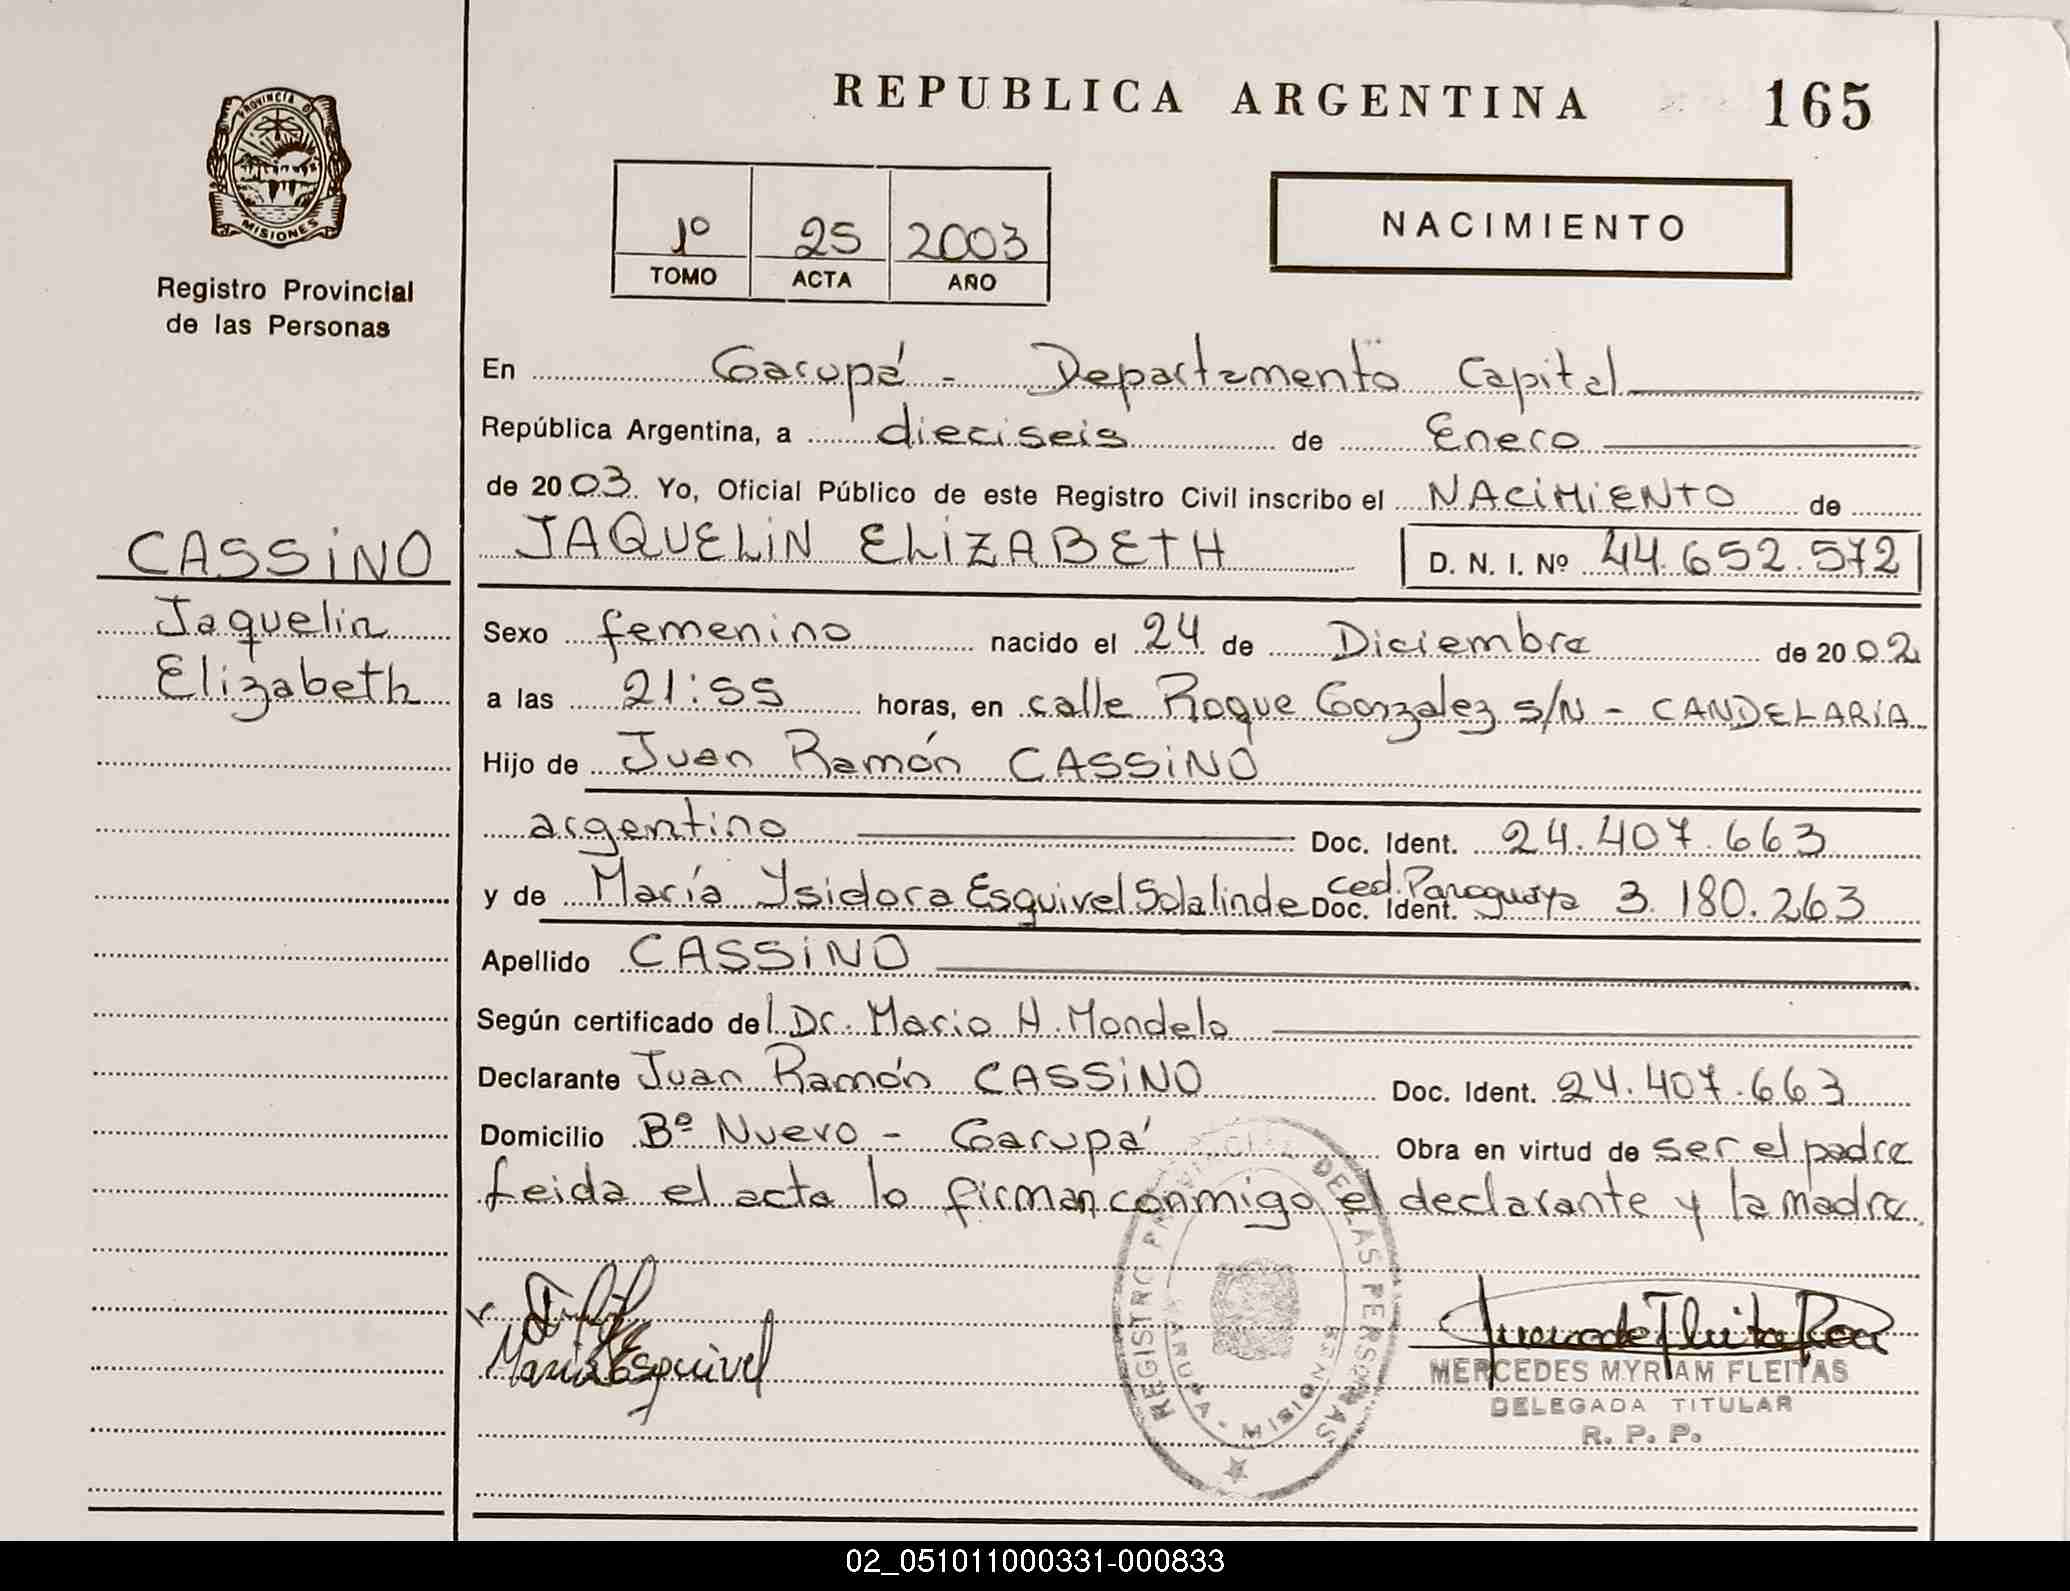 REPUBLICA ARGENTINA 165
PROVINCIA DE
MISIONES
Registro Provincial
de las Personas
1º 25 2003
TOMO ACTA AÑO
NACIMIENTO
En Garupá - Departamento Capital
República Argentina, a dieciseis de Enero
de 2003. Yo, Oficial Público de este Registro Civil inscribo el NACIMIENTO de
JAQUELIN ELIZABETH D. N. I. Nº 44.652.572
CASSINO
Jaquelin
Elizabeth
Sexo femenino nacido el 24 de Diciembre de 2002
a las 21:55 horas, en calle Roque Gonzalez s/N - CANDELARIA
Hijo de Juan Ramón CASSINO
argentino Doc. Ident. 24.407.663
y de María Ysidora Esquivel Solalinde Doc. Ident. Ced. Paraguaya 3.180.263
Apellido CASSINO
Según certificado del Dr. Mario H. Mondelo
Declarante Juan Ramón CASSINO Doc. Ident. 24.407.663
Domicilio Bº Nuevo - Garupá Obra en virtud de ser el padre
Leida el acta lo firman conmigo el declarante y la madre.
María Esquivel
REGISTRO PROVINCIAL DE LAS PERSONAS
GARUPA - MISIONES
MERCEDES MYRIAM FLEITAS
DELEGADA TITULAR
R. P. P.
02_051011000331-000833